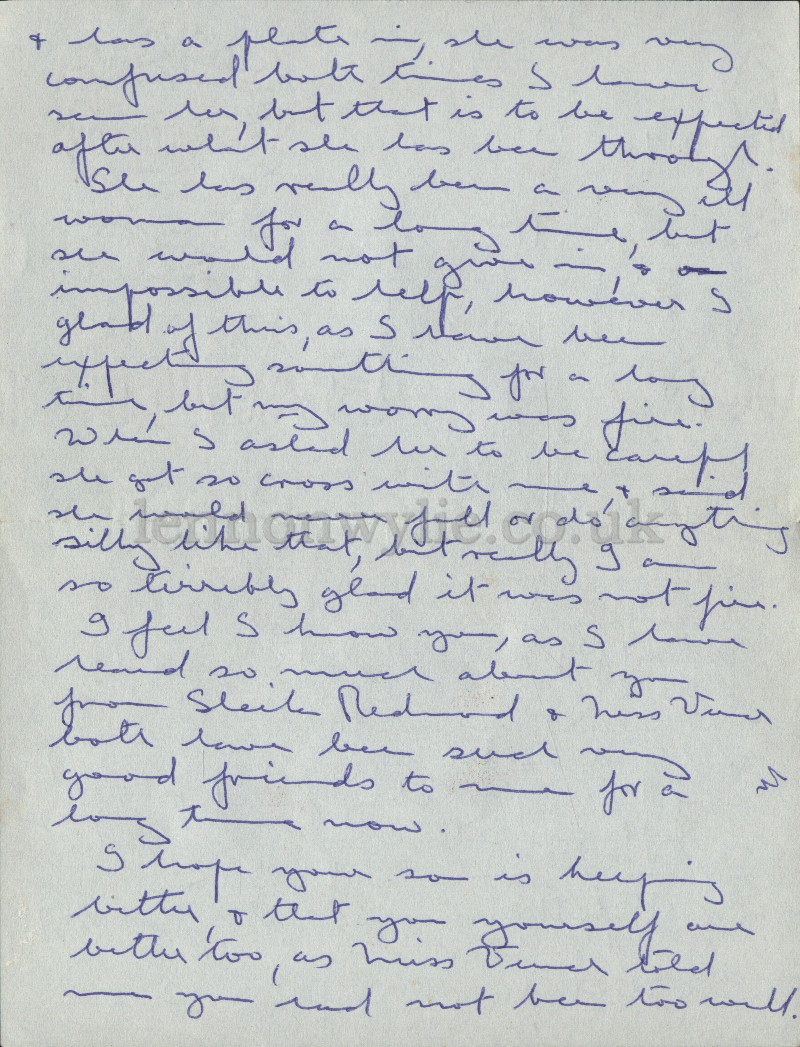 & has a plate in, she was very
confused both times I have
seen her, but that is to be expected
after what she has been through.
She has really been a very ill
woman for a long time, but
she would not give in, &
impossible to help, however I
glad of this, as I have been
expecting something for a long
time, but my worry was fire.
When I asked her to be careful
she got so cross with me, & said
she would never fall or do anything
silly like that, but really I am
so terribly glad it was not fire.
I feel I know you, as I have
heard so much about you
from Sheila Redmond & Miss
both have been such very
good friends to me for a
long time now.
I hope your son is keeping
better, & that you yourself are
better too, as Miss told
me you had not been too well.
lennonwylie.co.uk